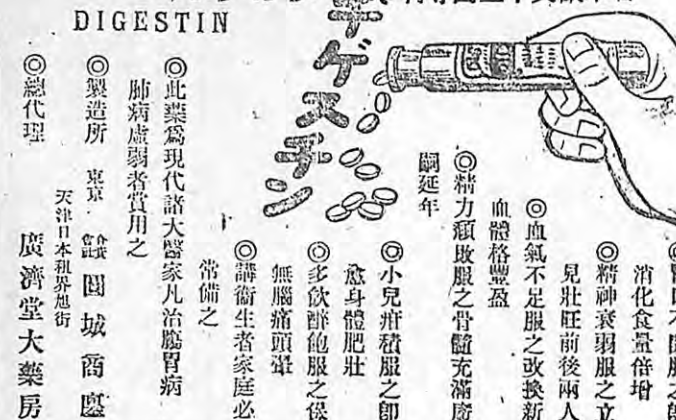 DIGESTIN
ゲスチン
不開服之
消化食量倍增
◎精神衰弱服之立
見壯旺前後兩人
◎血氣不足服之改換新
血體格豐盈
◎精力頹敗服之骨髓充滿廣
嗣延年
◎小兒疳積服之即
愈身體肥壯
◎多飲醉飽服之保
無腦痛頭暈
◎講衛生者家庭必
常備之
◎此藥爲現代諸大醫家凡治腸胃病
肺病虛弱者賞用之
◎製造所 東京 圓城商
◎總代理 天津日本租界旭街
廣濟堂大藥房